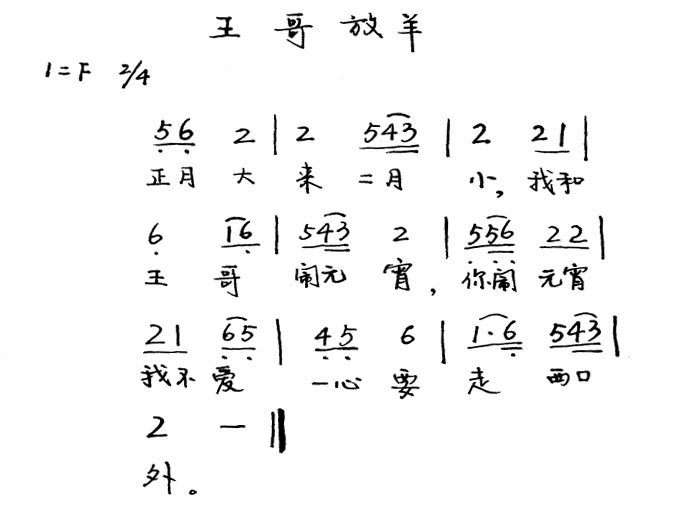 王哥放羊
1=F 2/4
56 2 | 2 543 | 2 21 |
正月大来二月小,我和
6 16 | 543 2 | 556 22 |
王哥闹元宵,你闹元宵
21 65 | 45 6 | 1·6 543 |
我不爱一心要走西口
2 — ‖
外。